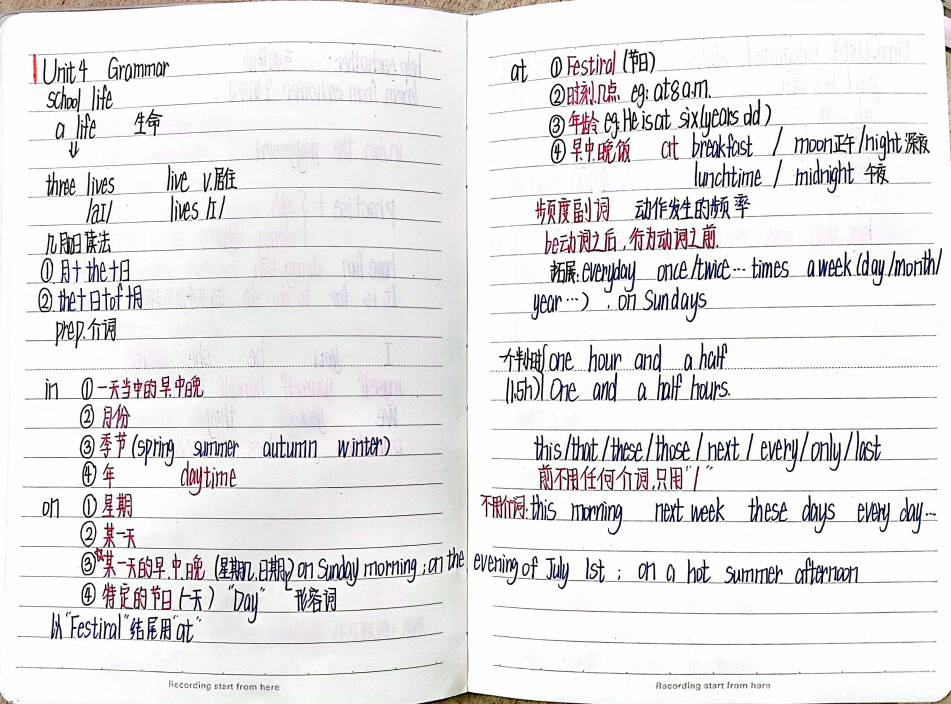 Unit 4 Grammar
school life
a life 生命
↓
three lives live v.居住
/aɪ/ lives /ɪ/
几月几日读法
① 月+the+日
② the+日+of+月
prep.介词
in ①一天当中的早.中.晚
② 月份
③ 季节(spring summer autumn winter)
④ 年 daytime
on ① 星期
② 某一天
③ 某一天的早.中.晚 (星期几,日期) on Sunday morning ; on the evening of July 1st ; on a hot summer afternoon
④ 特定的节日(一天) "Day" 形容词
以"Festiral"结尾用"at"
Recording start from here
at ① Festiral (节日)
② 时刻,几点 eg: at 8 a.m.
③ 年龄 eg He is at six(years old)
④ 早.中.晚饭 at breakfast / moon正午/night深夜
lunchtime / midnight 午夜
频度副词 动作发生的频率
be动词之后,行为动词之前.
拓展: everyday once/twice… times a week (day/month/
year…) . on Sundays
一个半小时 one hour and a half
(1.5h) One and a half hours.
this/that/these/those/next/every/only/last
前不用任何介词,只用"/"
不用介词: this morning next week these days every day…
Recording start from here